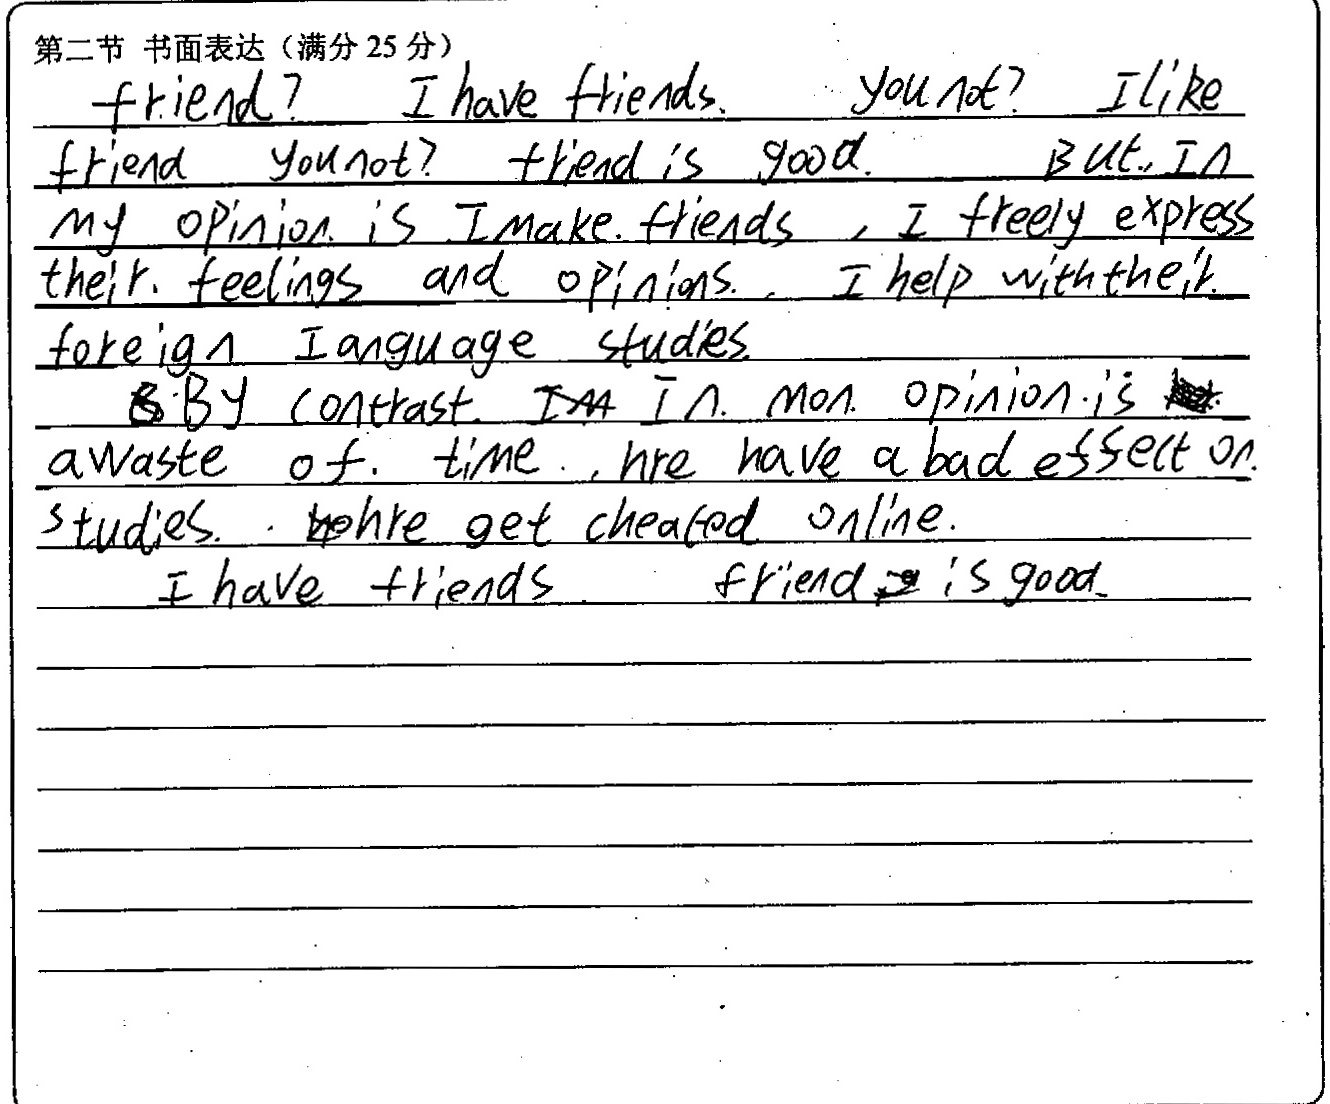 第二节 书面表达（满分 25 分）
friend? I have friends. you not? I like
friend you not? friend is good. But, In
my opinion is I make friends, I freely express
their feelings and opinions. I help with their
foreign language studies
By contrast. In mon opinion is
a waste of time, hre have a bad effect on
studies. hre get cheated online.
I have friends friend is good.